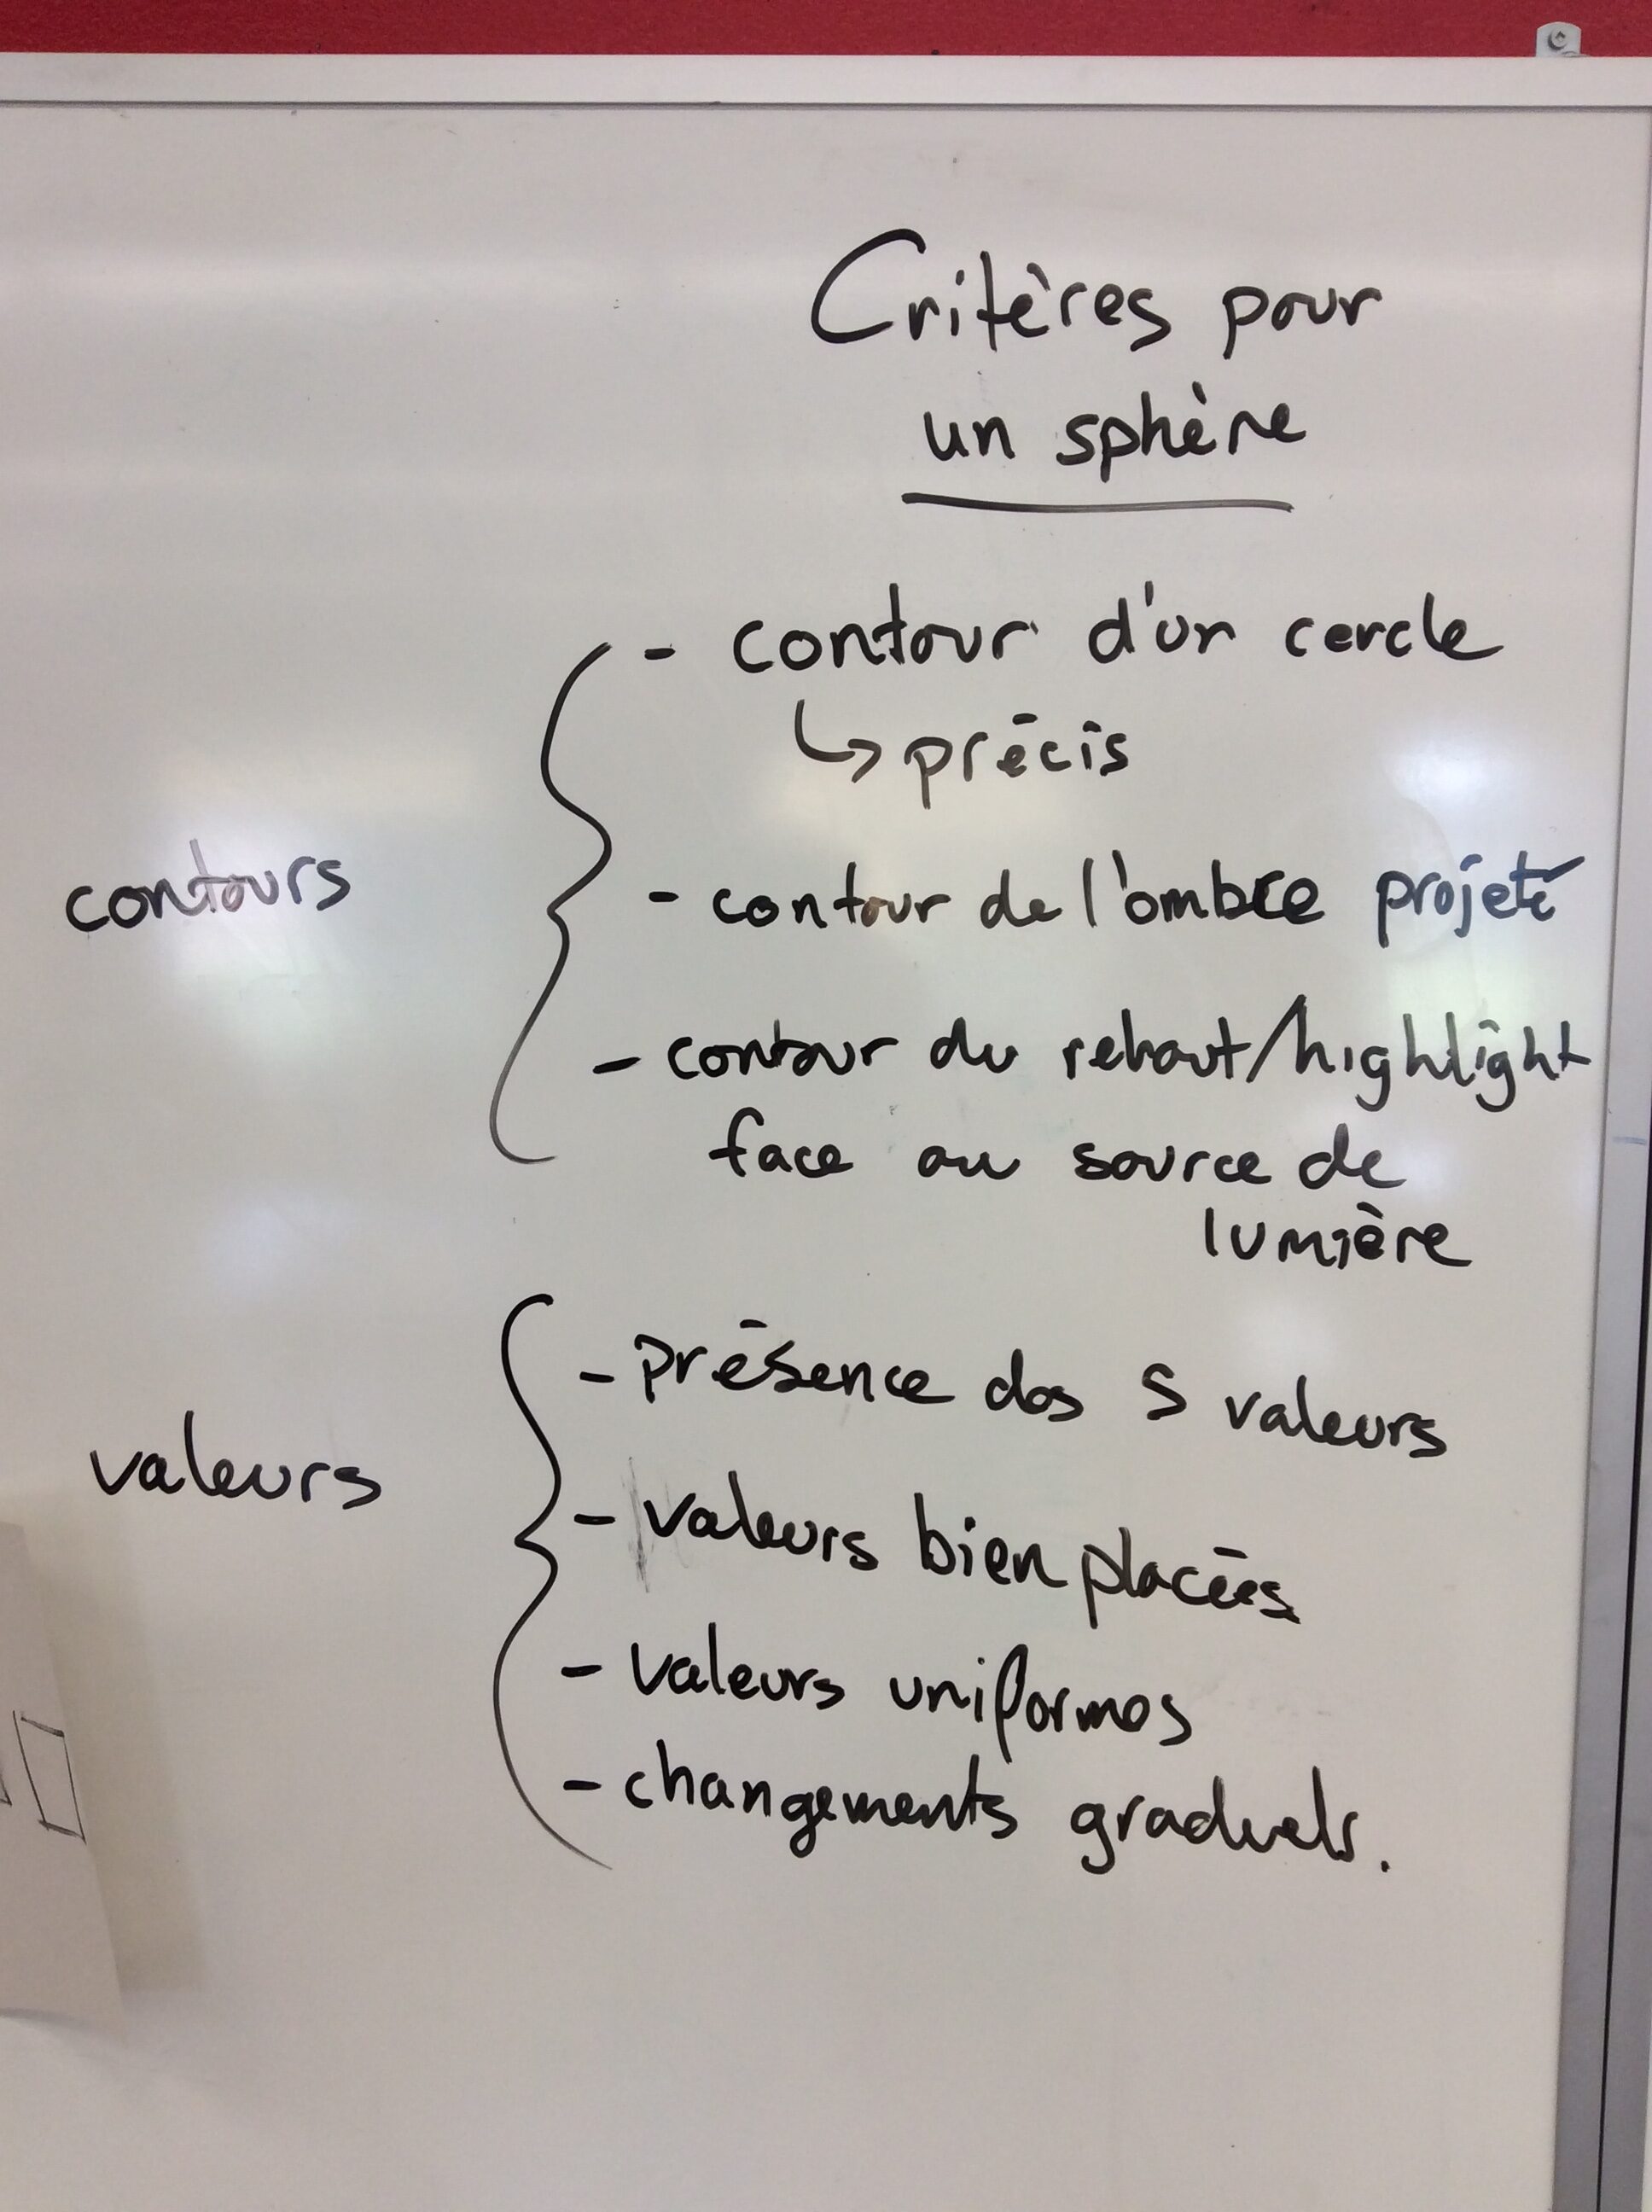 Critères pour
un sphère
contours
- contour d'un cercle
↳ précis
- contour de l'ombre projeté
- contour du rehaut/highlight
face au source de
lumière
valeurs
- présence des 5 valeurs
- valeurs bien placées
- valeurs uniformes
- changements graduels.